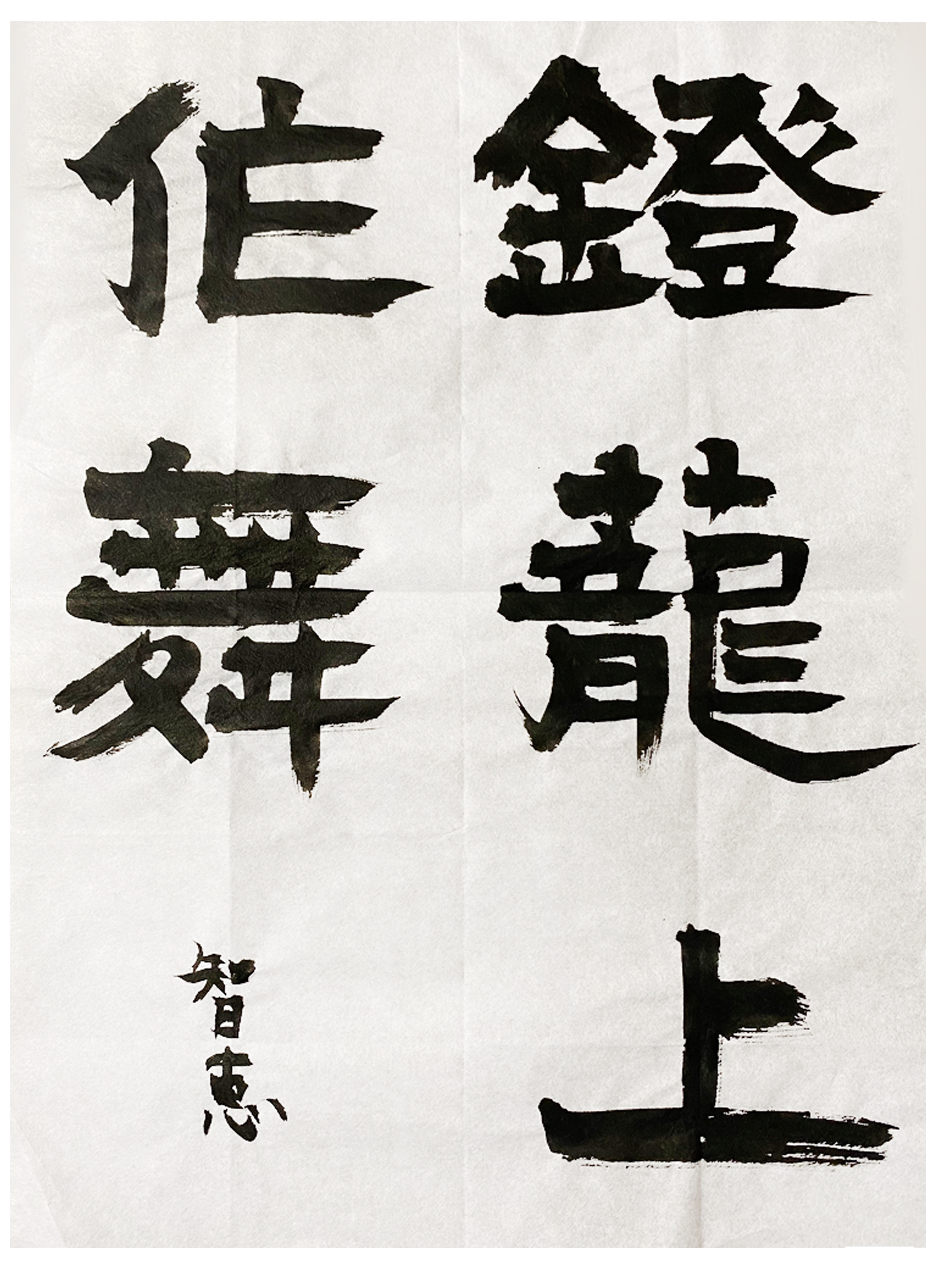 鐙龍上
作舞
智恵